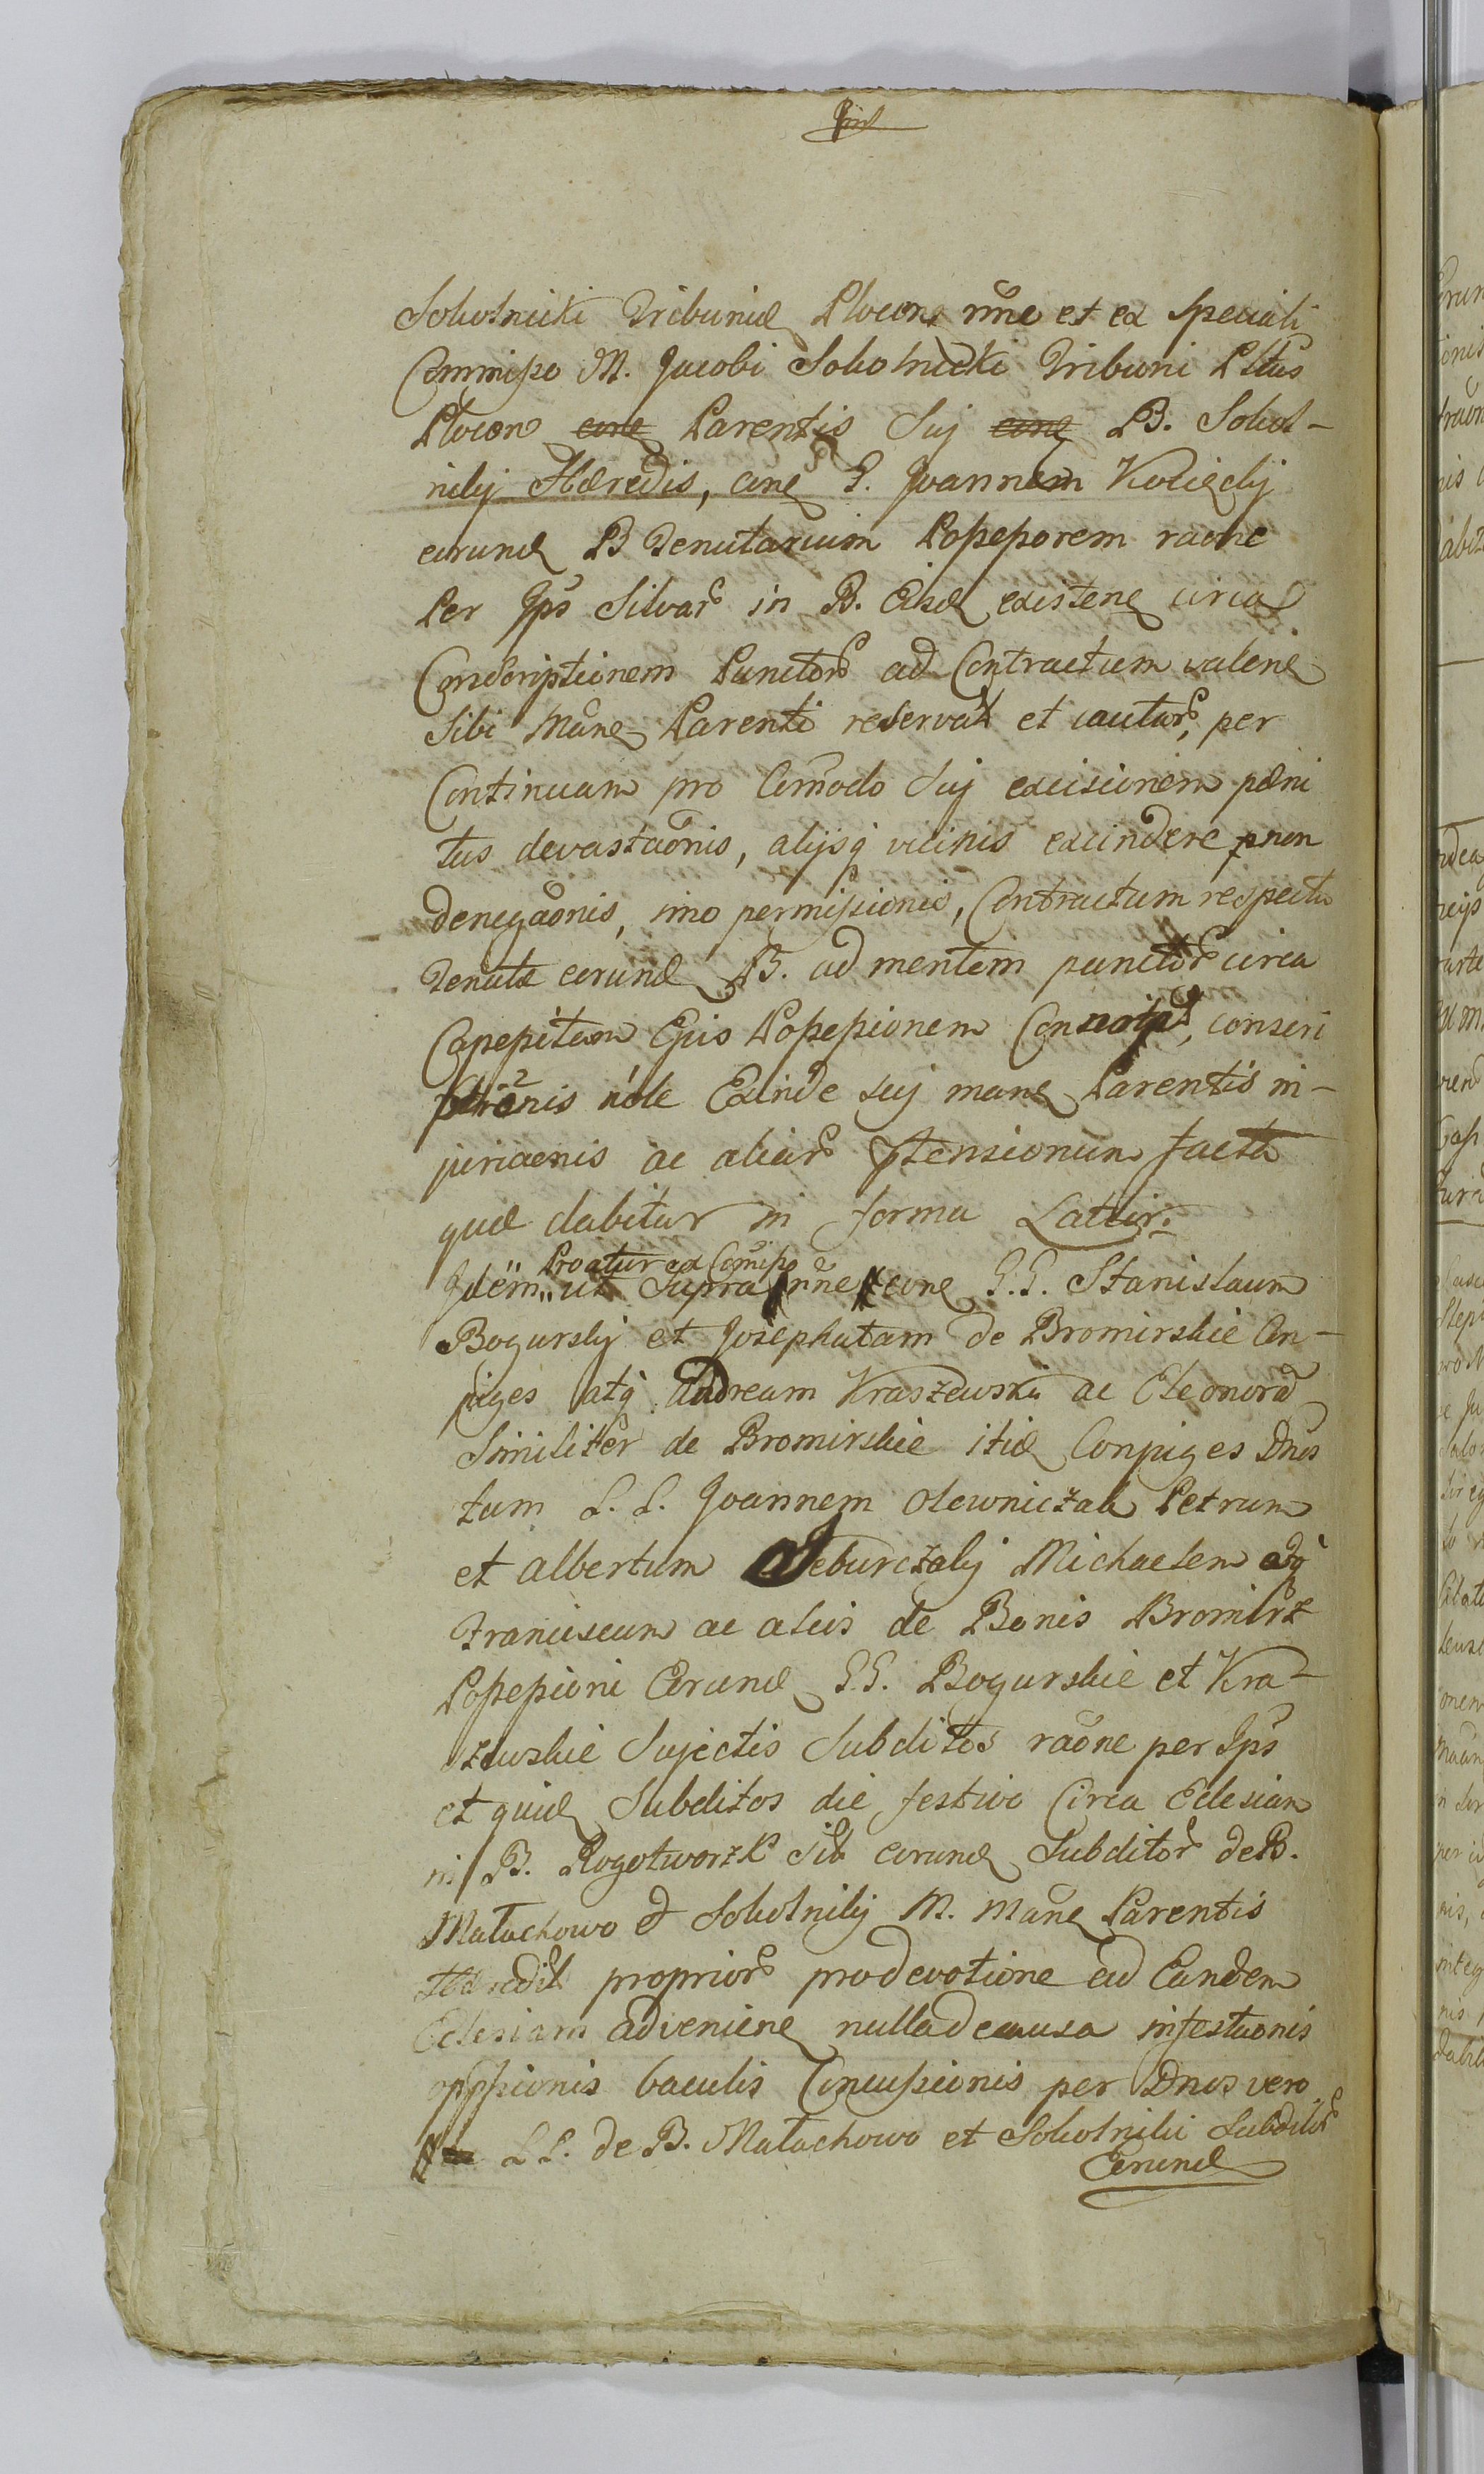 Sokolnicki Tribunid Plocens nne et ex speciali
Commisso M. Jacobi Sokolnicki Tribuni Pltus
Plocen Parentis Suj B. Sokol-
niky Hæredis, cone G. Joannem Kocięcky
eorund B Tenutarium Possessorem raone
Per Ips Silvar in B. Eisd existene circa
Conscriptionem Punctor ad Contractum valene
Sibi Mane Parenti reservat et cautar, per
Continuam pro Comodo Suj excisionem pæni
tus devastaonis, alysq vicinis excindere non
denegaonis, imo permissionis, Contractum respectu
Tenutæ eorund B. ad mentem punctor circa
Capessitam Ejus Possessionem conscri
ptionis Exinde suj mane Parentis in-
juriaonis ac aliar ptensionum facta
quæ dabitur in forma Lattior.
Proatur ex Comiss
Idem ut Supra nne cone G.G. Stanislaum
Bogursky et Josephatam de Bromirskie Con-
juges atq Andream Kraszewski ac Eleonora
Similiter de Bromirskie itid Conjuges Dnos
tum L. L. Joannem Olewniczak Petrum
et Albertum Michaelem
Franciscum ac alios de Bonis Bromirz
Possessioni Eorund G.G. Bogurskie et Kra-
szewskie Sujectis Subditos raone per Ips
et quid Subditos die festivo Circa Eclesiam
in B. Rogotworzk Sit eorund Subditor de B.
Małachowo et Sokolniky M. Mane Parentis
Hæredit proprior pro devotione ad Eandem
Eclesiam adveniene nulla de causa infestaonis
oppssionis baculis Concussionis per Dnos vero
LL. de B. Małachowo et Sokolniki Subditor
Eorund